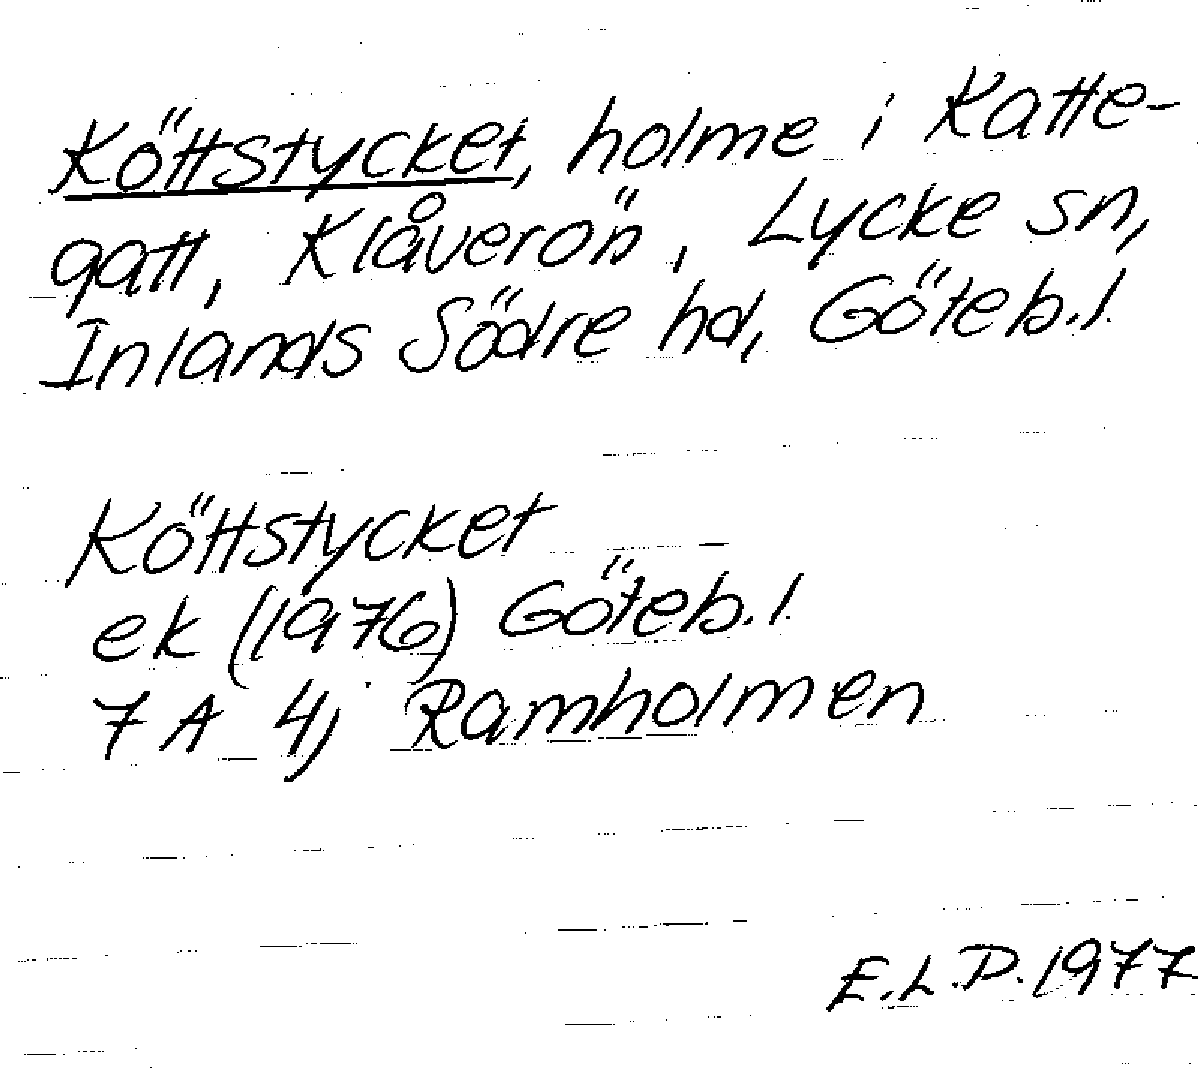 Köttstycket, holme i Katte-
gatt, Klåverön, Lycke sn,
Inlands Södre hd, Göteb.l.
Köttstycket
ek (1976) Göteb.l.
7 A 4, Ramholmen
E.L.D. 1977